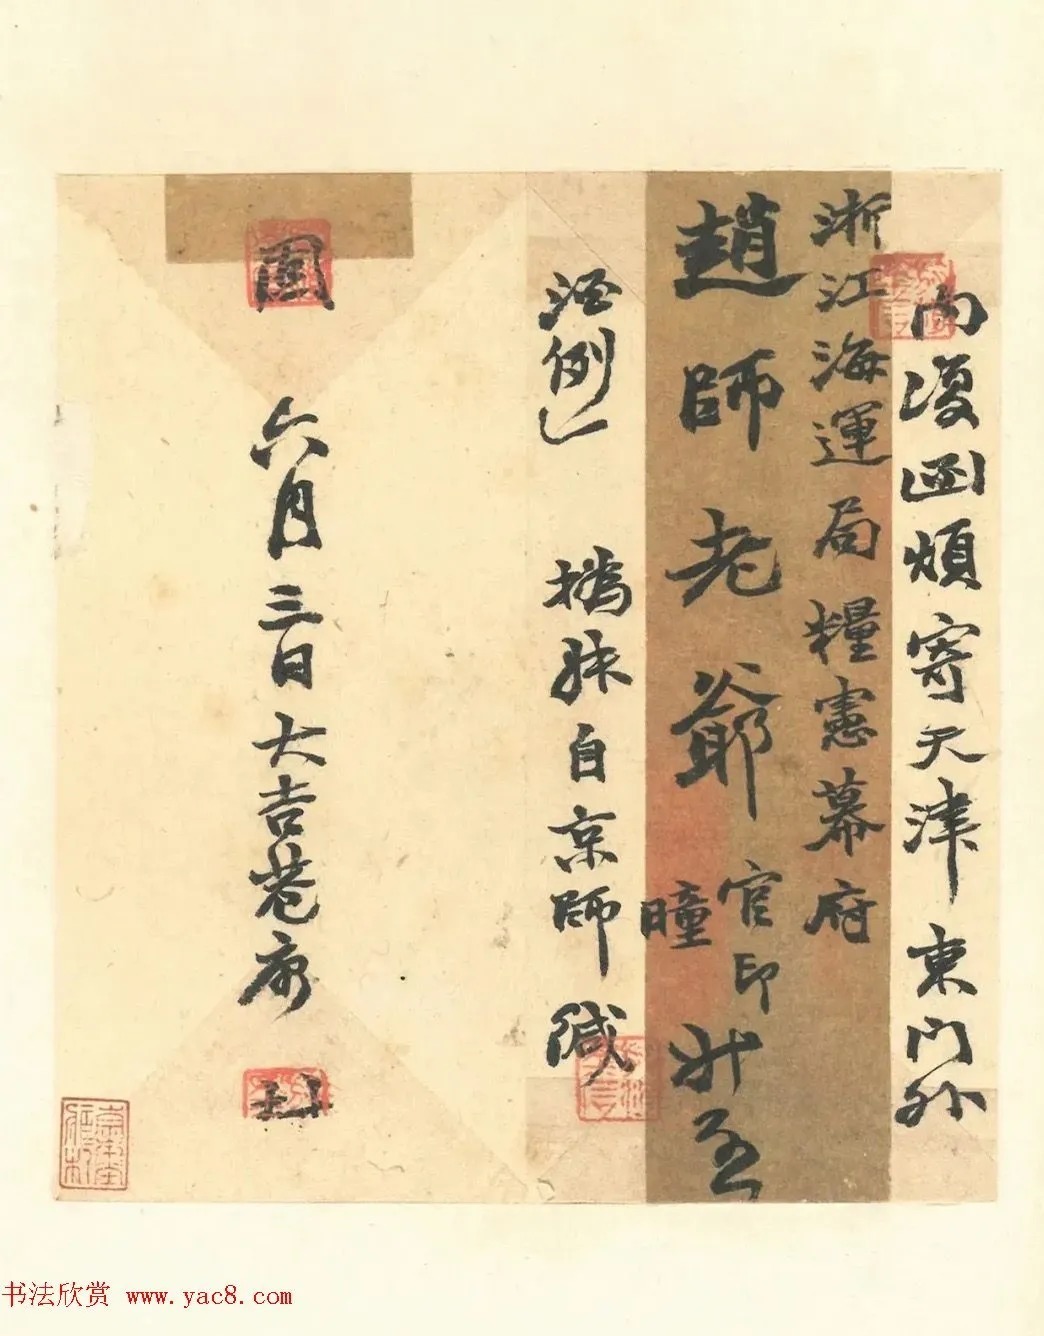 內復函煩寄天津東门外
浙江海運局糧憲幕府
趙師老爺 官印 曈 升至
酒例 撝叔自京師緘
固 六月三日大吉巷
书法欣赏 www.yac8.com